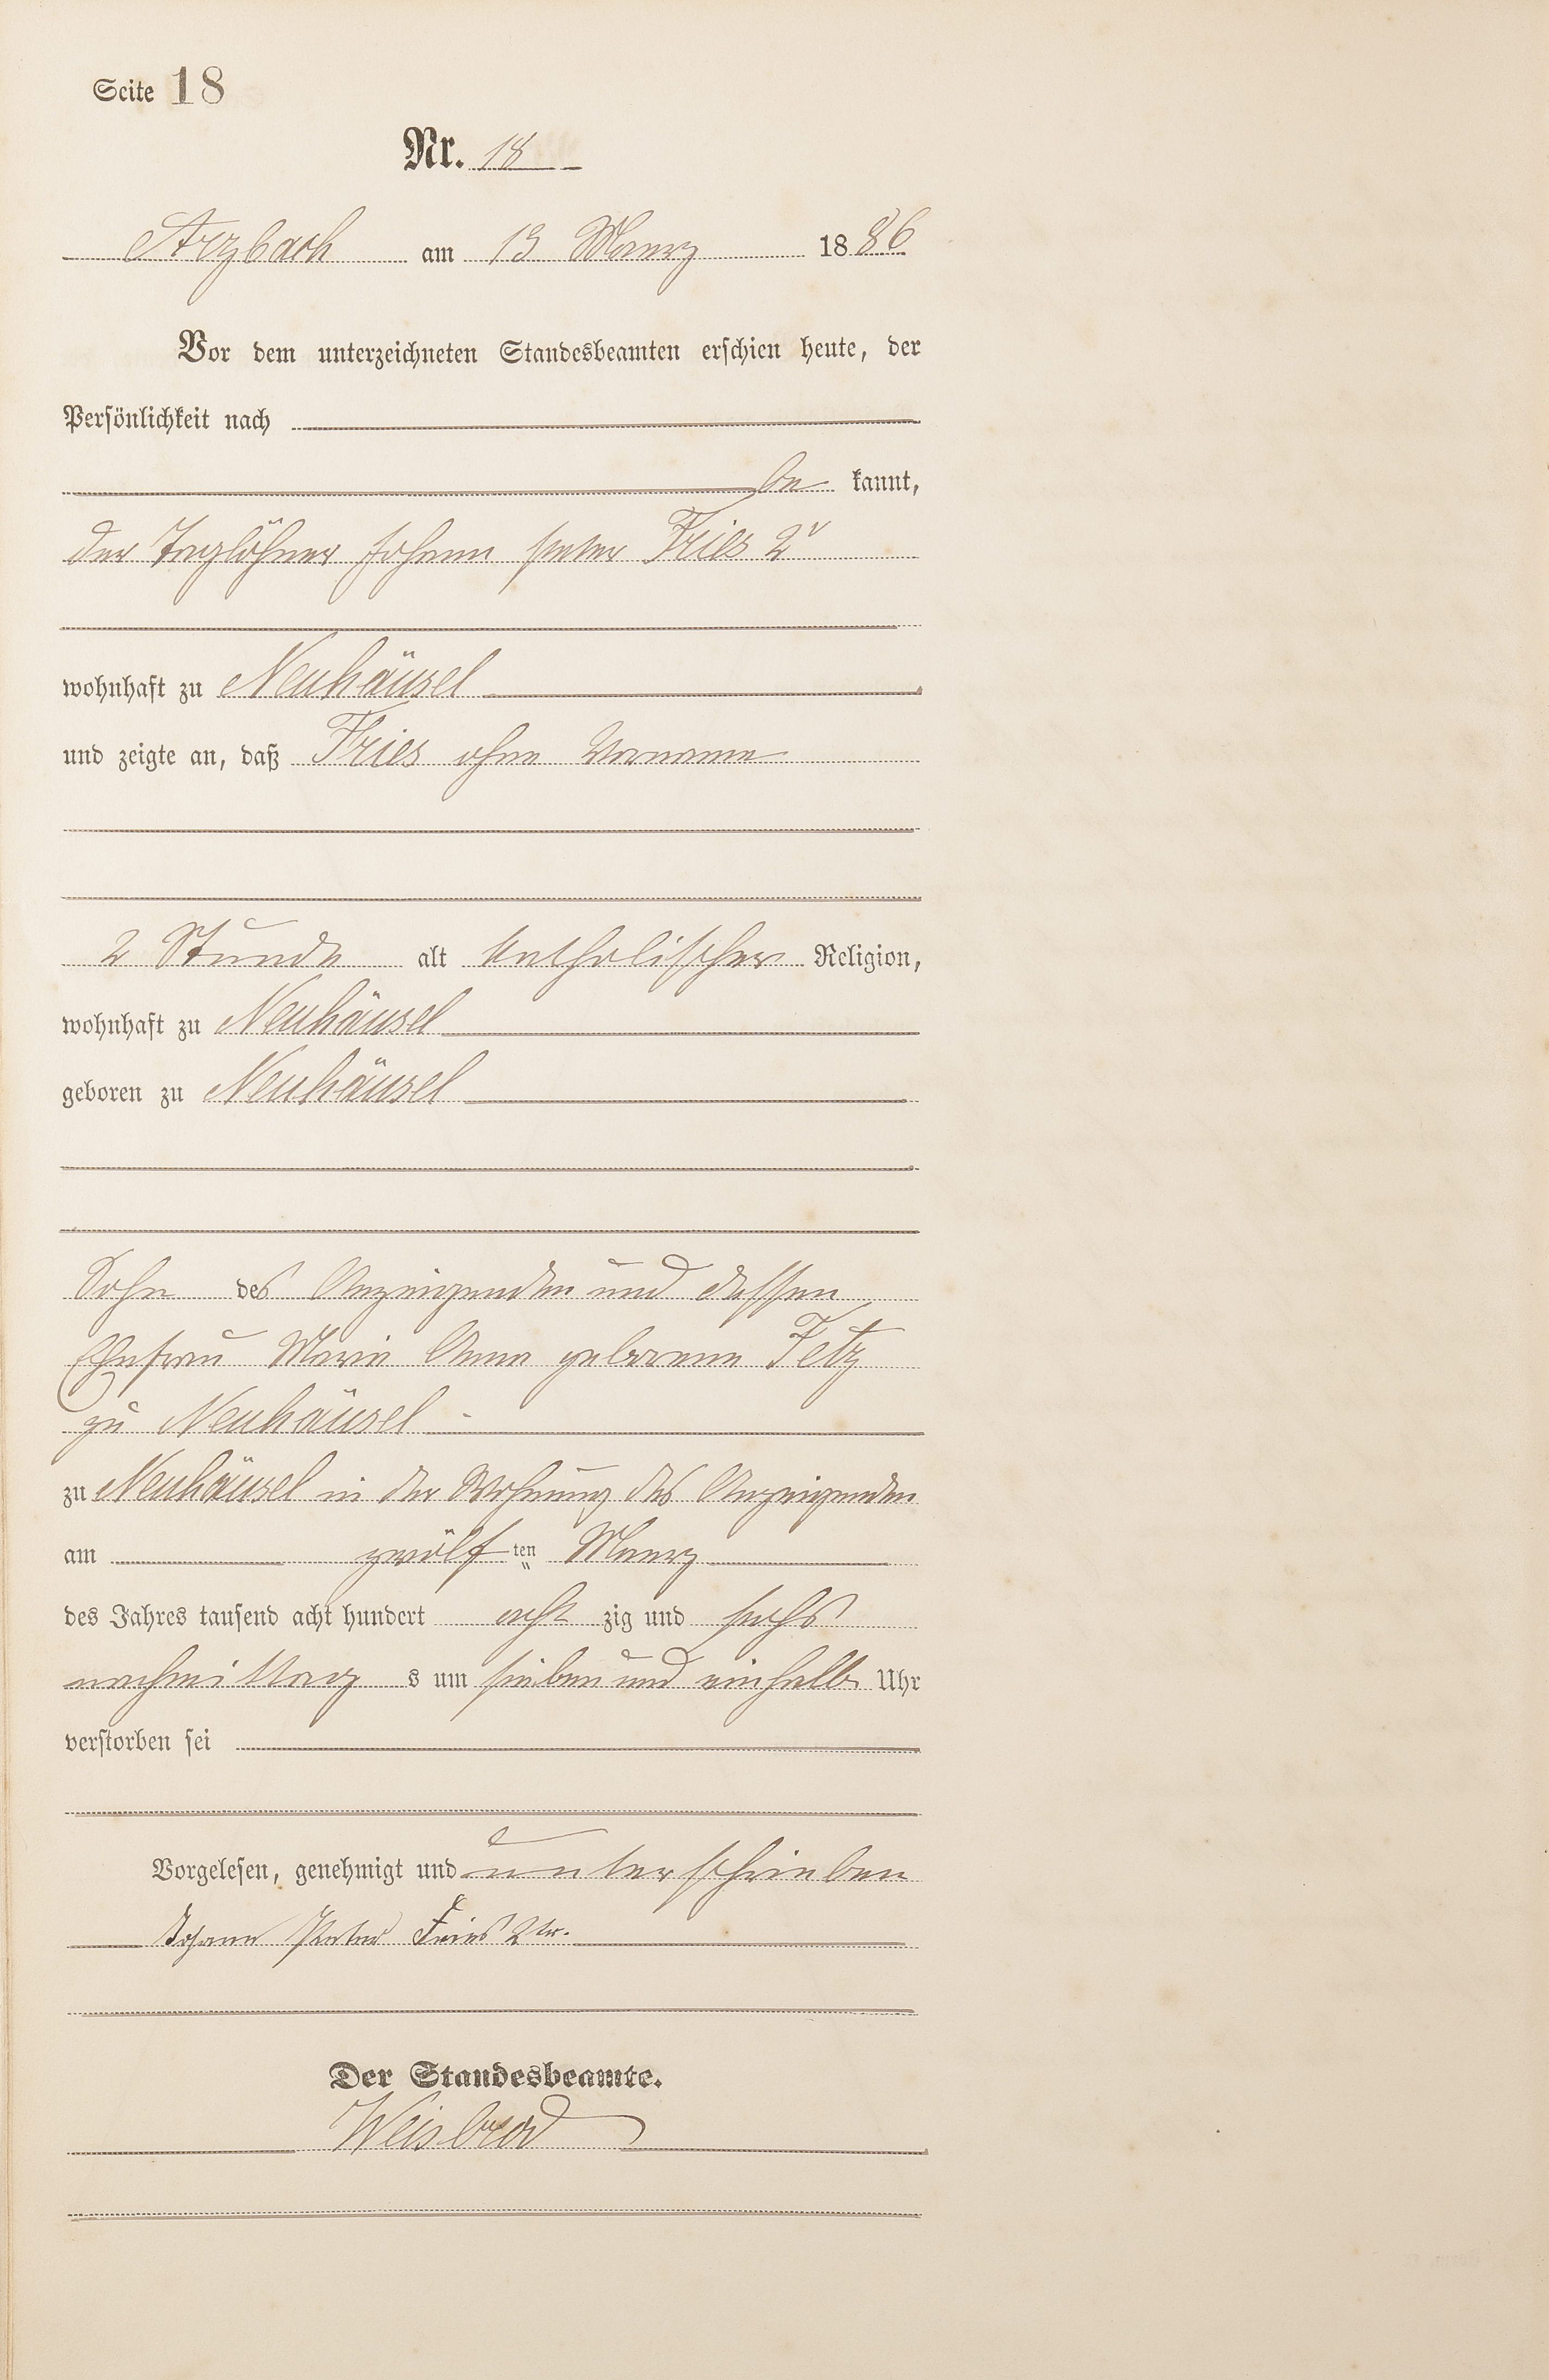 Seite 18
Nr. 18
Arzbach am 13 Maerz 1886
Vor dem unterzeichneten Standesbeamten erschien heute, der
Persönlichkeit nach
be kannt,
der Taglöhner Johann Peter Fries 2r
wohnhaft zu Neuhäusel
und zeigte an, daß Fries ohne Vorname
2 Stunde alt katholischer Religion,
wohnhaft zu Neuhäusel
geboren zu Neuhäusel
Sohn des Anzeigenden und dessen
Ehefrau Maria Anna geborene Fetz
zu Neuhäusel
zu Neuhäusel in der Wohnung des Anzeigenden
am zwölf ten Maerz
des Jahres tausend acht hundert acht zig und sechs
nachmittag s um sieben und einhalb Uhr
verstorben sei
Vorgelesen, genehmigt und unterschrieben
Johann Peter Fries 2ter.
Der Standesbeamte.
Weisbrod